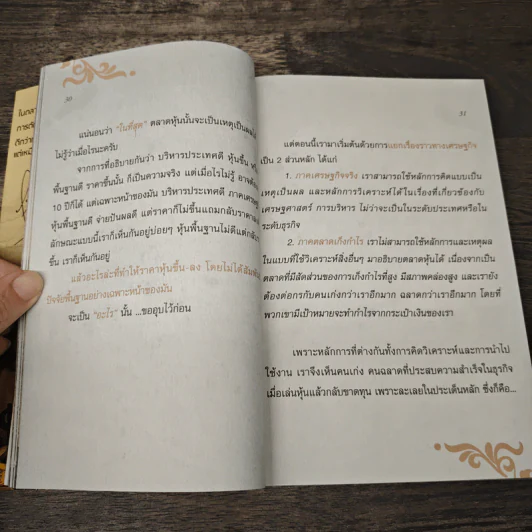 30
แน่นอนว่า "ในที่สุด" ตลาดหุ้นนั้นจะเป็นเหตุเป็นผลได้
ไม่รู้ว่าเมื่อไรนะครับ
จากการที่อธิบายกันว่า บริหารประเทศดี หุ้นขึ้น
พื้นฐานดี ราคาขึ้นนั้น ก็เป็นความจริง แต่เมื่อไรไม่รู้
10 ปีก็ได้ แต่เฉพาะหน้าของมัน บริหารประเทศดี
หุ้นพื้นฐานดี จ่ายปันผลดี แต่ราคาก็ไม่ขึ้นแถมกลับราคา
ลักษณะแบบนี้เราก็เห็นกันอยู่บ่อยๆ หุ้นพื้นฐานไม่ดีแต่กลับ
ขึ้น เราก็เห็นกันอยู่
แล้วอะไรล่ะที่ทำให้ราคาหุ้นขึ้น-ลง โดยไม่ได้สัมพันธ์
ปัจจัยพื้นฐานอย่างเฉพาะหน้าของมัน
จะเป็น "อะไร" นั้น ...ขออุบไว้ก่อน
31
แต่ตอนนี้เรามาเริ่มต้นด้วยการแยกเรื่องราวทางเศรษฐกิจ
เป็น 2 ส่วนหลัก ได้แก่
1. ภาคเศรษฐกิจจริง เราสามารถใช้หลักการคิดแบบเป็น
เหตุเป็นผล และหลักการวิเคราะห์ได้ในเรื่องที่เกี่ยวข้องกับ
เศรษฐศาสตร์ การบริหาร ไม่ว่าจะเป็นในระดับประเทศหรือใน
ระดับธุรกิจ
2. ภาคตลาดเก็งกำไร เราไม่สามารถใช้หลักการและเหตุผล
ในแบบที่ใช้วิเคราะห์สิ่งอื่นๆ มาอธิบายตลาดหุ้นได้ เนื่องจากเป็น
ตลาดที่มีสัดส่วนของการเก็งกำไรที่สูง มีสภาพคล่องสูง และเรายัง
ต้องต่อกรกับคนเก่งกว่าเราอีกมาก ฉลาดกว่าเราอีกมาก โดยที่
พวกเขามีเป้าหมายจะทำกำไรจากกระเป๋าเงินของเรา
เพราะหลักการที่ต่างกันทั้งการคิดวิเคราะห์และการนำไป
ใช้งาน เราจึงเห็นคนเก่ง คนฉลาดที่ประสบความสำเร็จในธุรกิจ
เมื่อเล่นหุ้นแล้วกลับขาดทุน เพราะละเลยในประเด็นหลัก ซึ่งก็คือ...